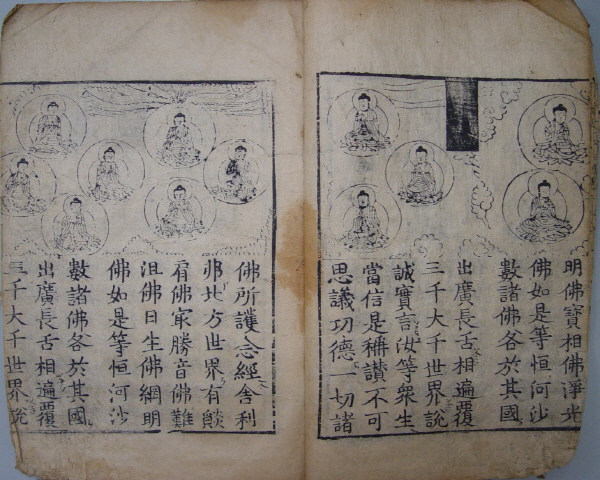 明佛寶相佛淨光
佛如是等恒河沙
數諸佛各於其國
出廣長舌相遍覆
三千大千世界說
誠實言汝等衆生
當信是稱讃不可
思議功德一切諸
佛所護念經舍利
弗北方世界有𦦨
肩佛㝡勝音佛難
沮佛日生佛網明
佛如是等恒河沙
數諸佛各於其國
出廣長舌相遍覆
三千大千世界說